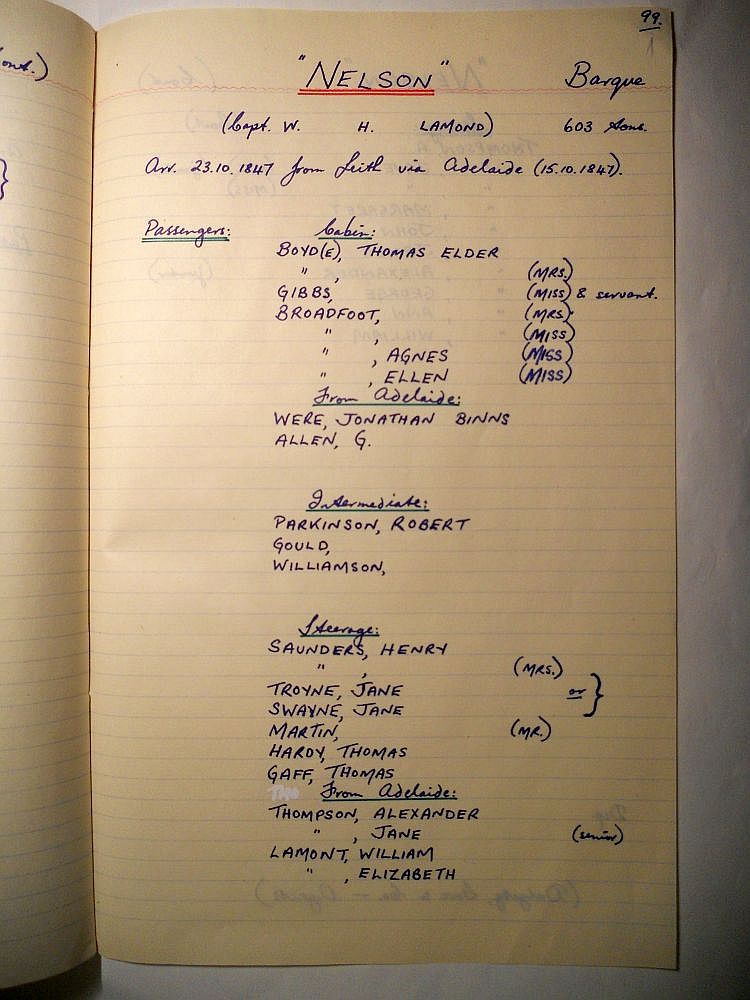 99.
"NELSON" Barque
(Capt. W. H. LAMOND) 603 tons.
Arr. 23.10.1847 from Leith via Adelaide (15.10.1847).
Passengers: Cabin:
BOYD(E), THOMAS ELDER
" , (MRS.)
GIBBS, (MISS) & servant.
BROADFOOT, (MRS.)
" , (MISS)
" , AGNES (MISS)
" , ELLEN (MISS)
From Adelaide:
WERE, JONATHAN BINNS
ALLEN, G.
Intermediate:
PARKINSON, ROBERT
GOULD,
WILLIAMSON,
Steerage:
SAUNDERS, HENRY
" , (MRS.)
TROYNE, JANE
or }
SWAYNE, JANE
MARTIN, (MR.)
HARDY, THOMAS
GAFF, THOMAS
From Adelaide:
THOMPSON, ALEXANDER
" , JANE (senior)
LAMONT, WILLIAM
" , ELIZABETH